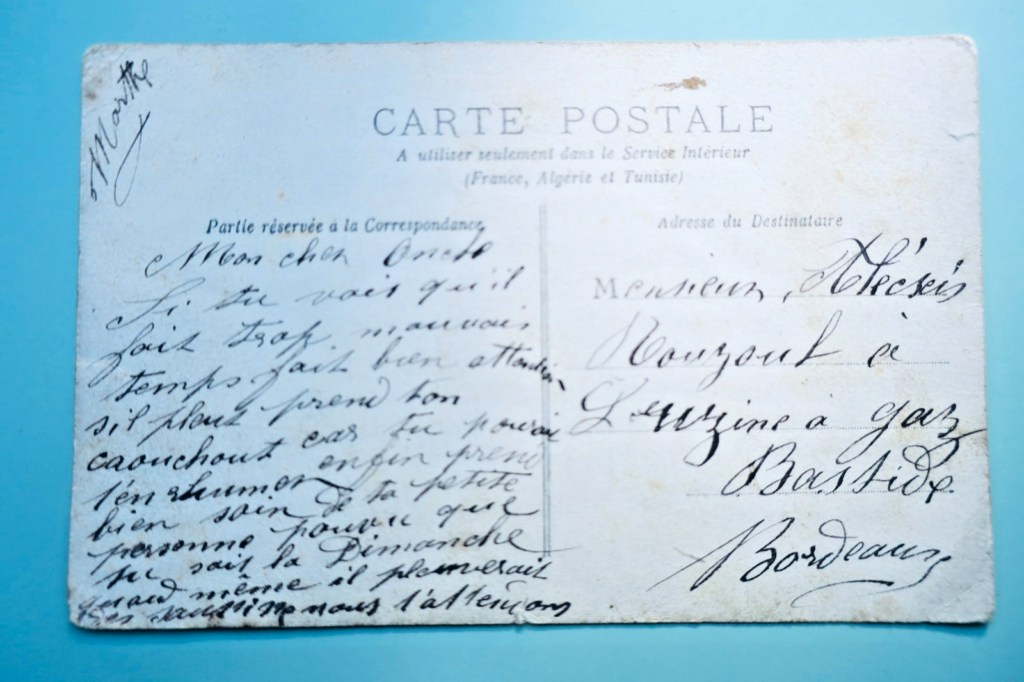 Marthe
CARTE POSTALE
A utiliser seulement dans le Service Intérieur
(France, Algérie et Tunisie)
Partie réservée à la Correspondance
Adresse du Destinataire
Mon cher Oncle
Si tu vois qu'il
fait trop mauvais
temps fait bien attention
sil pleut prend ton
caouchout car tu pourai
t'en rhumer enfin prend
bien soin de ta petite
personne pourvu que
tu soit la Dimanche
quand même il pleuverait
nous t'attendons
Monsieur Aléxis
Rouzoul à
L'euzine à gaz
Bastide
Bordeaux